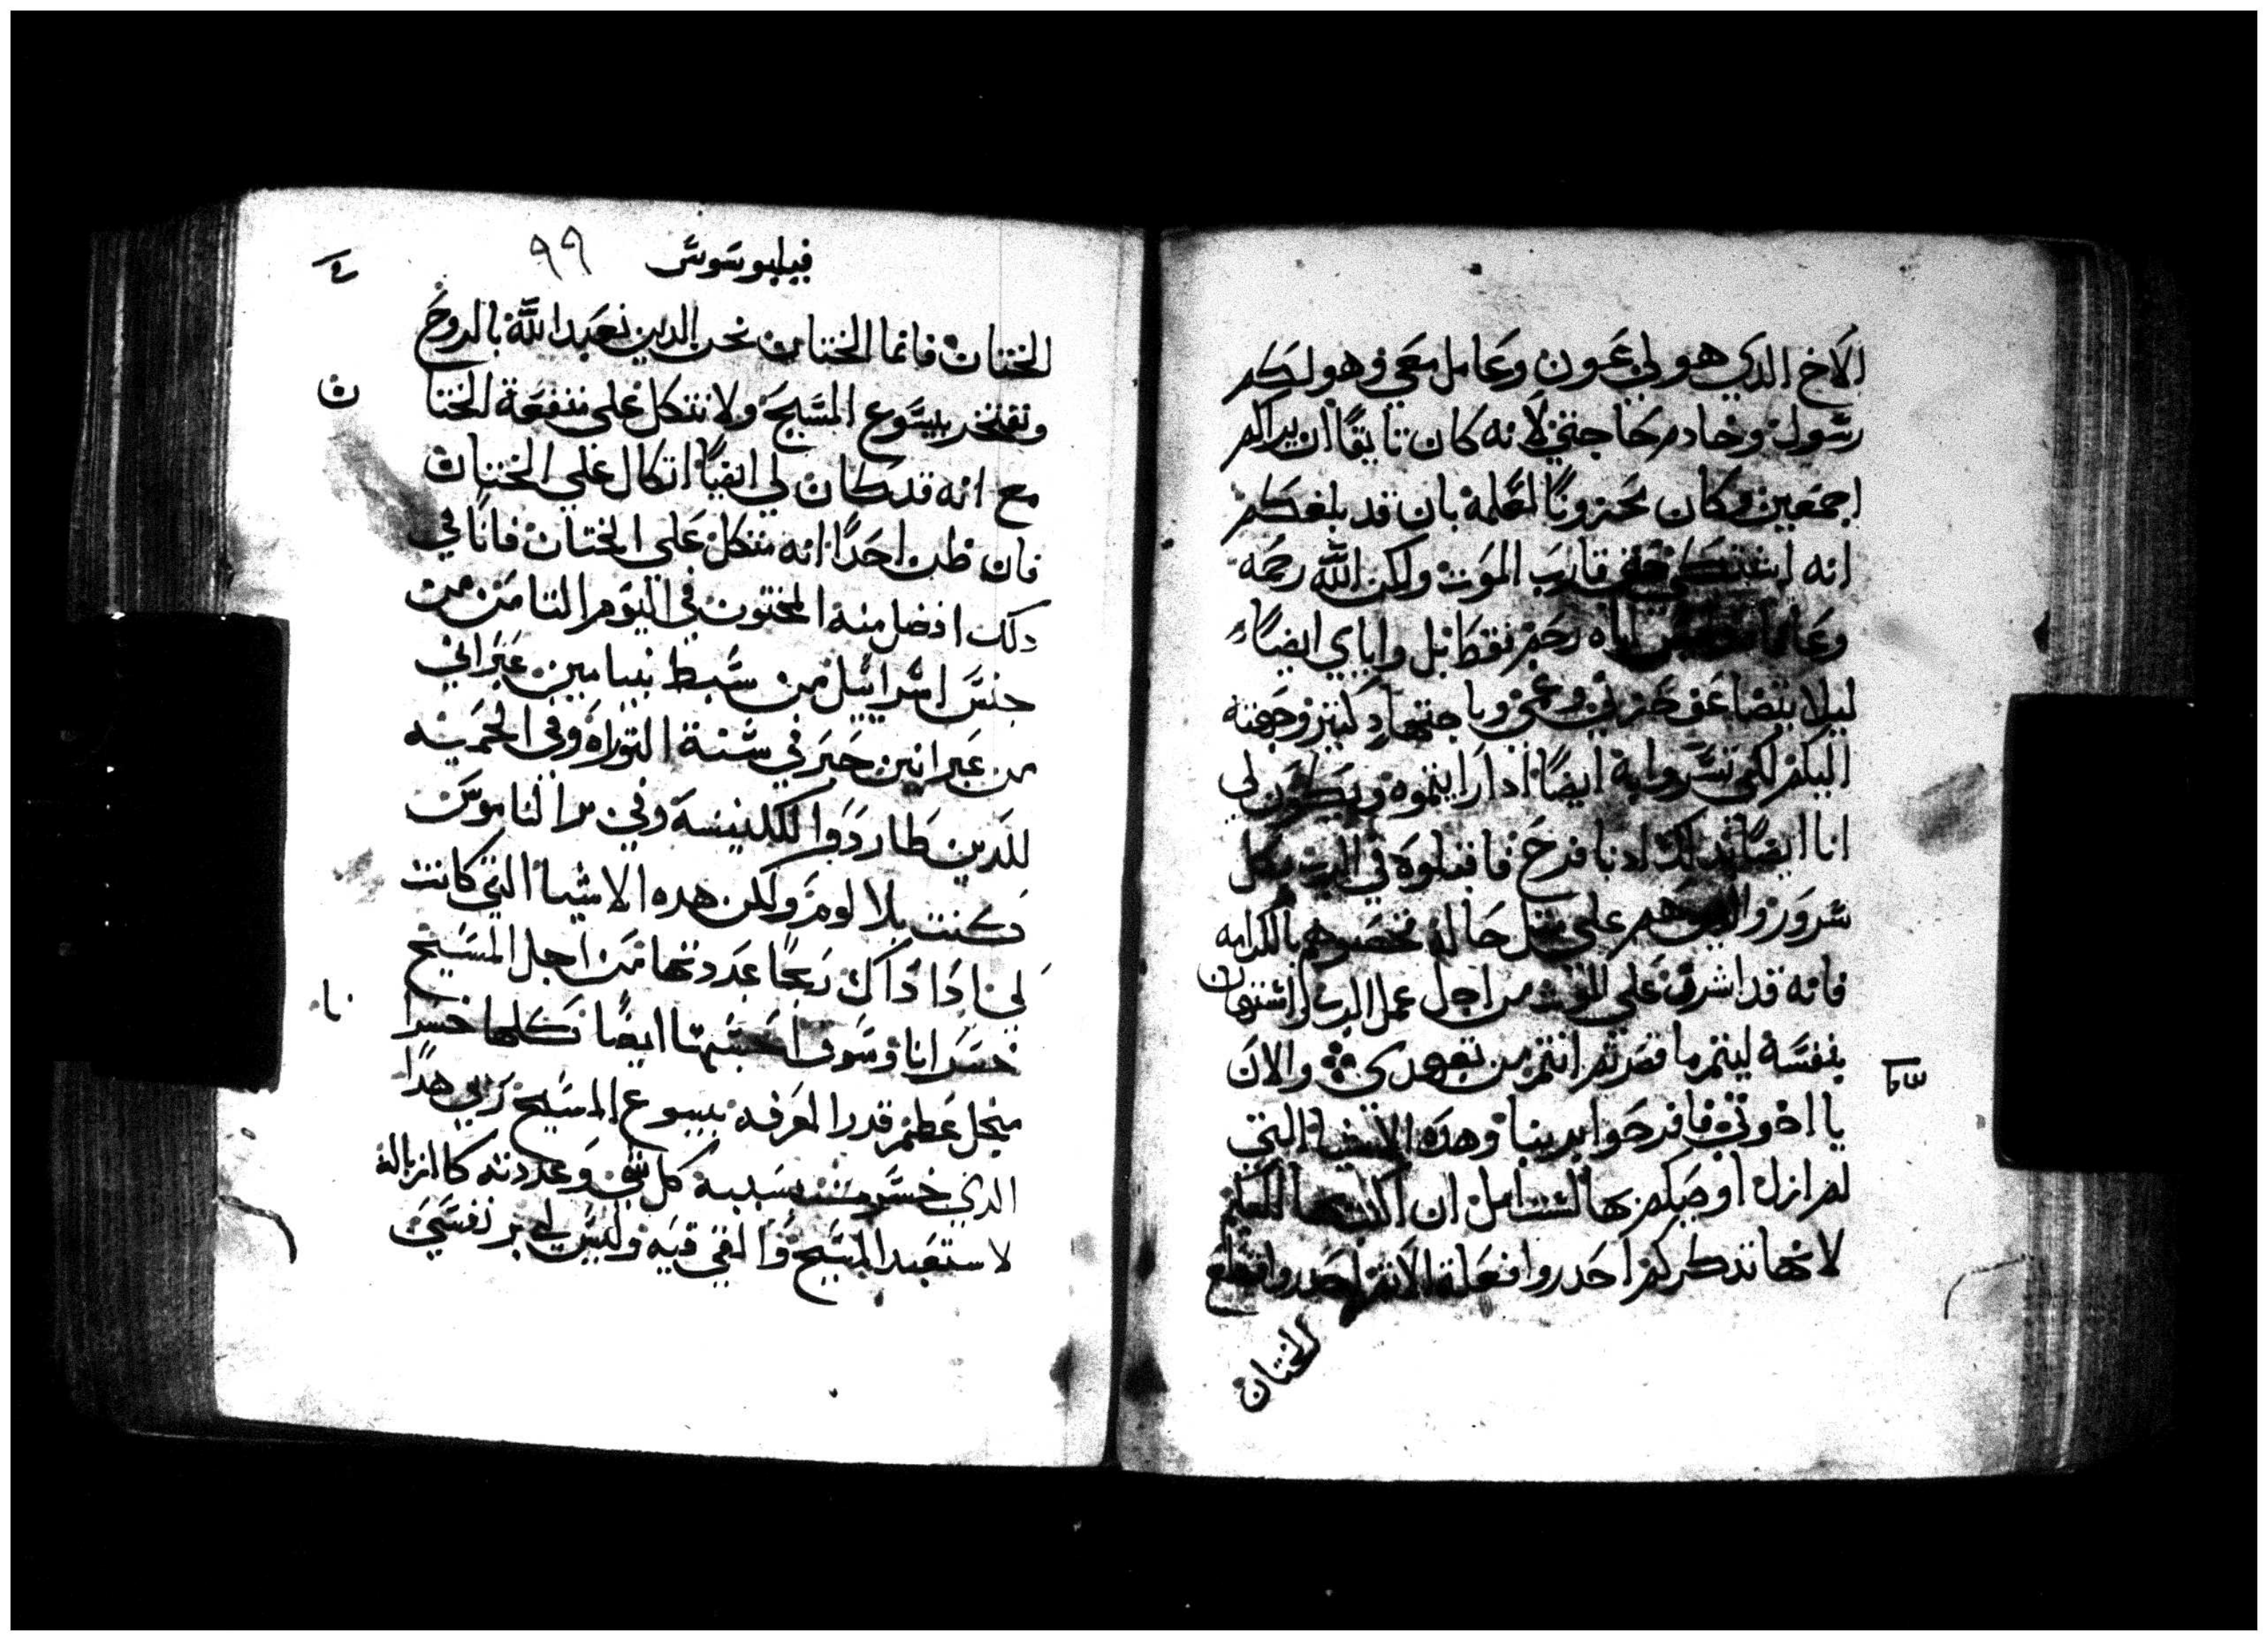 الاخ الدي هو لي عون وعامل معي وهو لكم
رسول وخادم حاجتي لانه كان تايقا ان يراكم
اجمعين وكان محزونا لعلمه بان قد بلغكم
انه اشتكى حتى قارب الموت ولكن الله رحمه
اياه رحم فقط بل واياي ايضا
ليلا يتضاعف حزني وغمي وباجتهاد كتير وجهته
اليكم لكي تسروا به ايضا ادا رايتموه ويكون لي
انا ايضا بدلك ادنا فرح فاقبلوه في الرب بكل
سرور والدين هم على مثل حاله تخصوهم بالكرامه
فانه قد اشرف على الموت من اجل عمل الرب واستهان
بنفسه ليتم ما قصرتم انتم من تعهدي والان
يا اخوتي فافرحوا بربنا وهده الاشيا التي
لم ازل اوصيكم بها لست امل ان اكتب بها اليكم
لانها تدكركم احدروا فعلة الاتم احدروا قطع
الختان
٣
فيلبوسوس ٩٩
الختان فانما الختان نحن الدين نعبد الله بالروح
ونفتخر بيسوع المسيح ولا نتكل على منفعة الختا
ن
مع انه قد كان لي ايضا اتكال على الختان
فان ظن احدا انه متكل على الختان فانا في
دلك افضل منه المختون في اليوم التامن من
جنس اسراييل من سبط بنيامين عبراني
من عبرانين حبر في سنة التوراه وفي الحميه
للدين طاردوا للكنيسة وفي بر الناموس
كنت بلا لوم ولكن هده الاشيا التي كانت
لي ادا داك ربحا عددتها من اجل المسيح
خسرانا وسوف احسبها ايضا كلها خسرا
نا
من اجل عظم قدر المعرفه بيسوع المسيح ربي هدا
الدي خسرت بسببه كل شي وعددته كالزباله
لاستفيد المسيح والقي فيه وليس لي بر نفسي